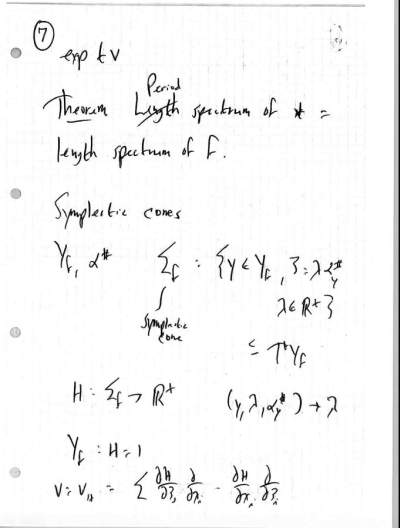 7
exp t v
Period
Theorem Length spectrum of * =
length spectrum of f.
Symplectic cones
Y_f, α^# Σ_f : {y ∈ Y_f, ξ = λ α^#_y
λ ∈ R^+}
symplectic
cone
⊆ T*Y_f
H : Σ_f → R^+ (y, λ, α^#_y) → λ
Y_f : H = 1
v = v_H = Σ ∂H/∂ξ_i ∂/∂x_i - ∂H/∂x_i ∂/∂ξ_i